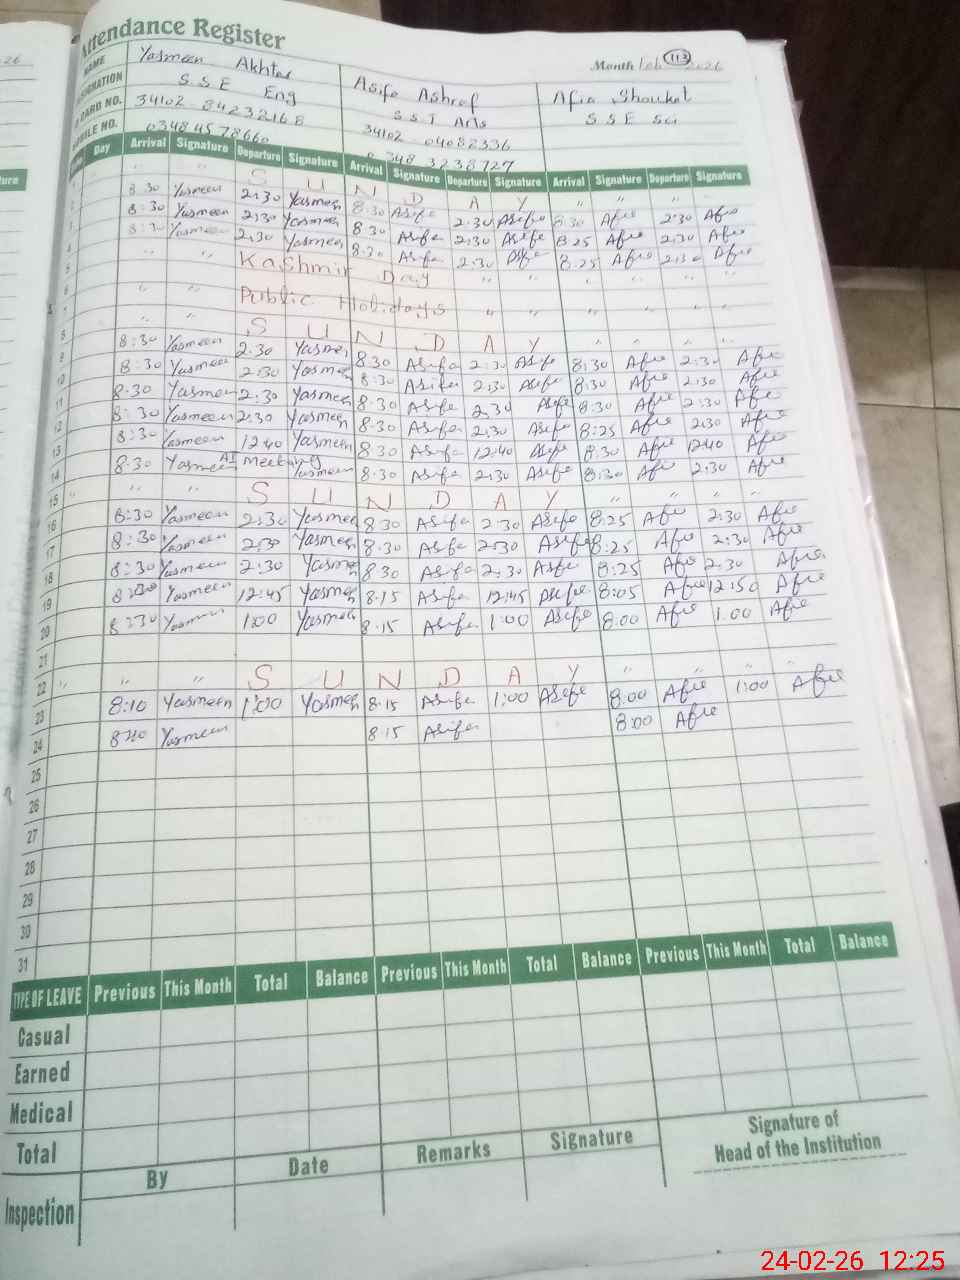 26
Attendance Register
Month Feb 113 2026
NAME Yasmeen Akhtar Asifa Ashraf Afia Shoukat
DESIGNATION S.S.E Eng S.S.T Arts S.S.E Sci
CARD NO. 34102 84232168 34102 04082336
MOBILE NO. 0348 4578660 348 3238727
Day Arrival Signature Departure Signature Arrival Signature Departure Signature Arrival Signature Departure Signature
1 " " S U N D A Y " " "
2 8:30 Yasmeen 2:30 Yasmeen 8:30 Asifa 2:30 Asifa 8:30 Afia 2:30 Afia
3 8:30 Yasmeen 2:30 Yasmeen 8:30 Asifa 2:30 Asifa 8:25 Afia 2:30 Afia
4 8:30 Yasmeen 2:30 Yasmeen 8:30 Asifa 2:30 Asifa 8:25 Afia 2:30 Afia
5 " " Kashmir Day " " " " " "
6 " " Public Holidays " " " " " "
7 " "
8 S U N D A Y " " " "
9 8:30 Yasmeen 2:30 Yasmeen 8:30 Asifa 2:30 Asifa 8:30 Afia 2:30 Afia
10 8:30 Yasmeen 2:30 Yasmeen 8:30 Asifa 2:30 Asifa 8:30 Afia 2:30 Afia
11 8:30 Yasmeen 2:30 Yasmeen 8:30 Asifa 2:30 Asifa 8:30 Afia 2:30 Afia
12 8:30 Yasmeen 2:30 Yasmeen 8:30 Asifa 2:30 Asifa 8:25 Afia 2:30 Afia
13 8:30 Yasmeen 12:40 Yasmeen 8:30 Asifa 12:40 Asifa 8:30 Afia 12:40 Afia
14 8:30 Yasmeen At Meeting Yasmeen 8:30 Asifa 2:30 Asifa 8:30 Afia 2:30 Afia
15 " " " S U N D A Y " " " "
16 8:30 Yasmeen 2:30 Yasmeen 8:30 Asifa 2:30 Asifa 8:25 Afia 2:30 Afia
17 8:30 Yasmeen 2:30 Yasmeen 8:30 Asifa 2:30 Asifa 8:25 Afia 2:30 Afia
18 8:30 Yasmeen 2:30 Yasmeen 8:30 Asifa 2:30 Asifa 8:25 Afia 2:30 Afia
19 8:30 Yasmeen 12:45 Yasmeen 8:15 Asifa 12:45 Asifa 8:05 Afia 12:50 Afia
20 8:30 Yasmeen 1:00 Yasmeen 8:15 Asifa 1:00 Asifa 8:00 Afia 1:00 Afia
21
22 " " " S U N D A Y " " " "
23 8:10 Yasmeen 1:00 Yasmeen 8:15 Asifa 1:00 Asifa 8:00 Afia 1:00 Afia
24 8:10 Yasmeen 8:15 Asifa 8:00 Afia
25
26
27
28
29
30
31
TYPE OF LEAVE Previous This Month Total Balance Previous This Month Total Balance Previous This Month Total Balance
Casual
Earned
Medical
Total
Inspection By Date Remarks Signature Signature of
Head of the Institution
24-02-26 12:25